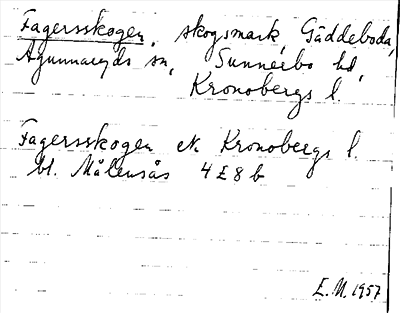 Fagersskogen, skogsmark, Gäddeboda,
Agunnaryds sn, Sunnerbo hd,
Kronobergs l.
Fagersskogen ek. Kronobergs l.
bl. Målensås 4E8b
E.M. 1957